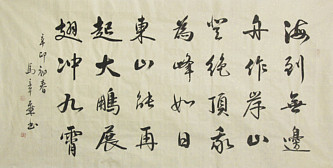 海到無邊
作岸山
登絕頂我
為峰如日
東山能再
起大鵬展
翅冲九霄
辛卯初春
馬章书